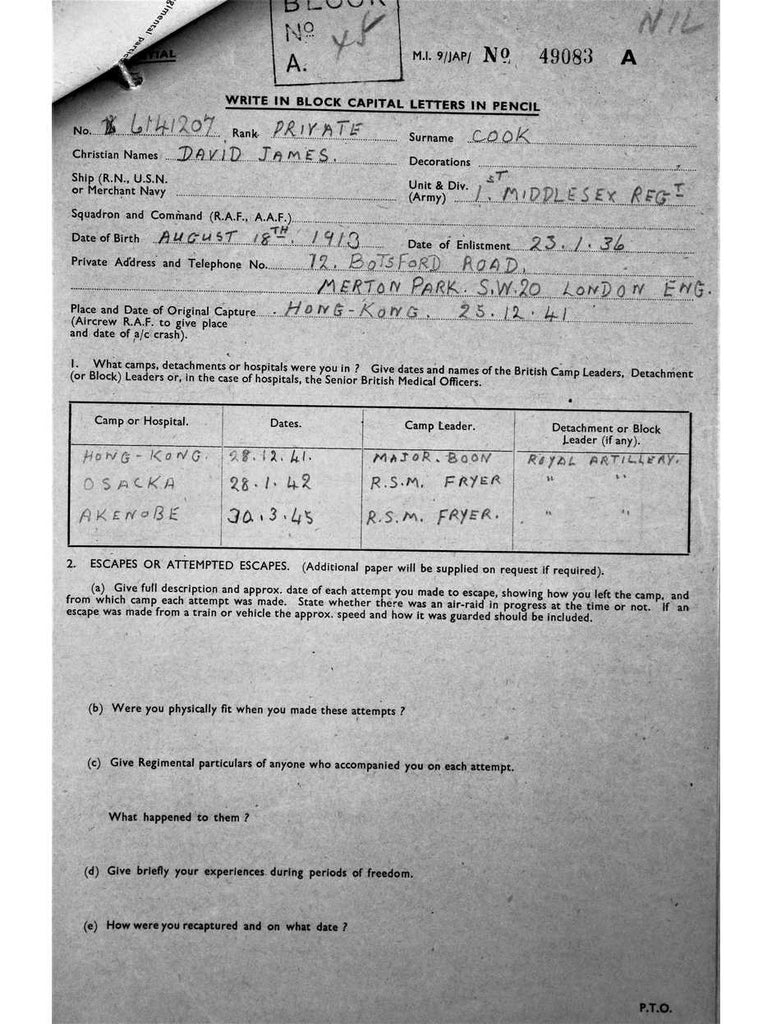 BLOCK
Nº 45
A.
NIL
M.I. 9/JAP/ Nº 49083 A
WRITE IN BLOCK CAPITAL LETTERS IN PENCIL
No. 6141207 Rank PRIVATE Surname COOK
Christian Names DAVID JAMES. Decorations
Ship (R.N., U.S.N. or Merchant Navy
Unit & Div. (Army) 1.ST MIDDLESEX REGT
Squadron and Command (R.A.F., A.A.F.)
Date of Birth AUGUST 18TH. 1913 Date of Enlistment 23.1.36
Private Address and Telephone No. 72. BOTSFORD ROAD,
MERTON PARK. S.W.20 LONDON ENG.
Place and Date of Original Capture . HONG-KONG. 25.12.41
(Aircrew R.A.F. to give place
and date of a/c crash).
1. What camps, detachments or hospitals were you in ? Give dates and names of the British Camp Leaders, Detachment
(or Block) Leaders or, in the case of hospitals, the Senior British Medical Officers.
Camp or Hospital. Dates. Camp Leader. Detachment or Block Leader (if any).
HONG-KONG. 28.12.41. MAJOR. BOON ROYAL ARTILLERY.
OSACKA 28.1.42 R.S.M. FRYER " "
AKENOBE 30.3.45 R.S.M. FRYER. " "
2. ESCAPES OR ATTEMPTED ESCAPES. (Additional paper will be supplied on request if required).
(a) Give full description and approx. date of each attempt you made to escape, showing how you left the camp, and
from which camp each attempt was made. State whether there was an air-raid in progress at the time or not. If an
escape was made from a train or vehicle the approx. speed and how it was guarded should be included.
(b) Were you physically fit when you made these attempts ?
(c) Give Regimental particulars of anyone who accompanied you on each attempt.
What happened to them ?
(d) Give briefly your experiences during periods of freedom.
(e) How were you recaptured and on what date ?
P.T.O.